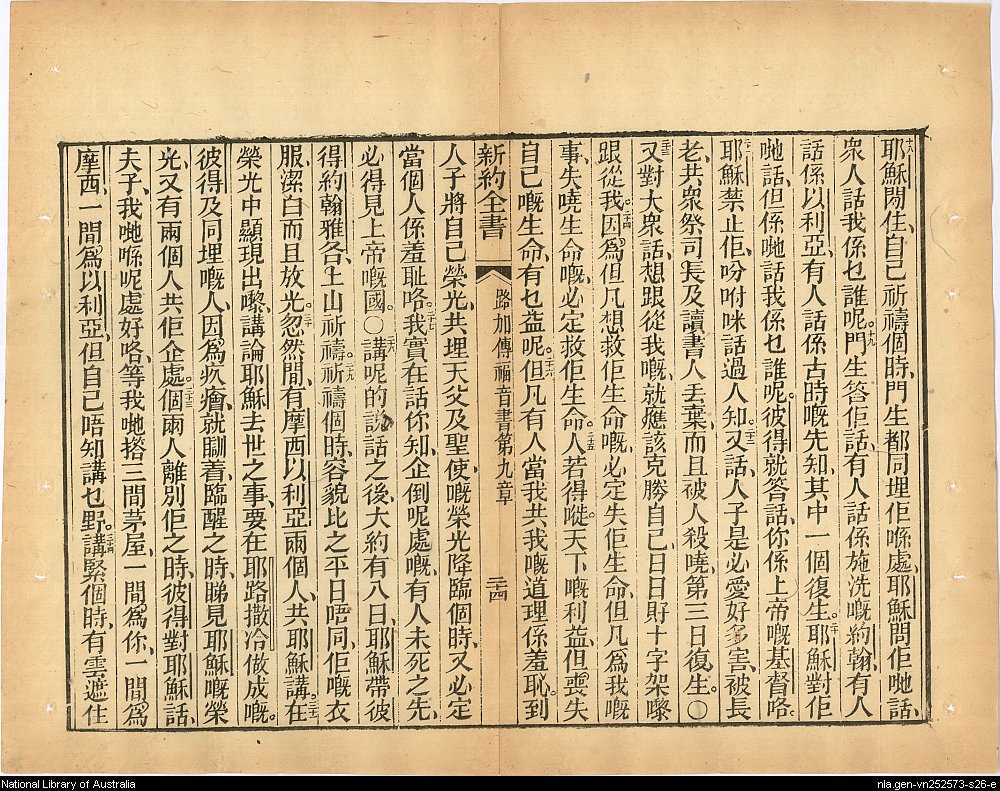 十八耶穌閒住、自己祈禱個時、門生都同埋佢喺處、耶穌問佢哋話、
衆人話我係乜誰呢。十九門生答佢話、有人話係施洗嘅約翰、有人
話係以利亞、有人話係古時嘅先知、其中一個復生。二十耶穌對佢
哋話、但係哋話我係乜誰呢。彼得就答話、你係上帝嘅基督咯。
二一耶穌禁止佢、吩咐咪話過人知。二二又話、人子是必愛好多害、被長
老、共衆祭司長及讀書人丟棄、而且被人殺嘵、第三日復生。〇
二三又對大衆話、想跟從我嘅、就應該克勝自己、日日𢬿十字架嚟
跟從我。二四因爲但凡想救佢生命嘅、必定失佢生命、但凡爲我嘅
事、失嘵生命嘅、必定救佢生命。二五人若得嘥天下嘅利益、但喪失
自己嘅生命、有乜益呢。二六但凡有人當我共我嘅道理係羞恥、到
新約全書 路加傳福音書第九章 三十四
人子將自己榮光、共埋天父及聖使、嘅榮光降臨個時、又必定
當個人係羞耻咯。二七我實在話你知、企倒呢處嘅、有人未死之先、
必得見上帝嘅國。〇二八講呢的說話之後、大約有八日、耶穌帶彼
得約翰雅各、上山祈禱。二九祈禱個時、容貌比之平日唔同、佢嘅衣
服潔白而且放光。三十忽然間、有摩西以利亞兩個人、共耶穌講。三一在
榮光中顯現出嚟、講論耶穌去世之事、要在耶路撒冷做成嘅。
彼得及同埋嘅人、因爲疚癐、就瞓着、臨醒之時、睇見耶穌嘅榮
光、又有兩個人共佢企處。三三個兩人離別佢之時、彼得對耶穌話、
夫子、我哋喺呢處好咯、等我哋搭三間茅屋、一間爲你、一間爲
摩西、一間爲以利亞、但自己唔知講乜野。三四講緊個時、有雲遮住
National Library of Australia
nla.gen-vn252573-s26-e